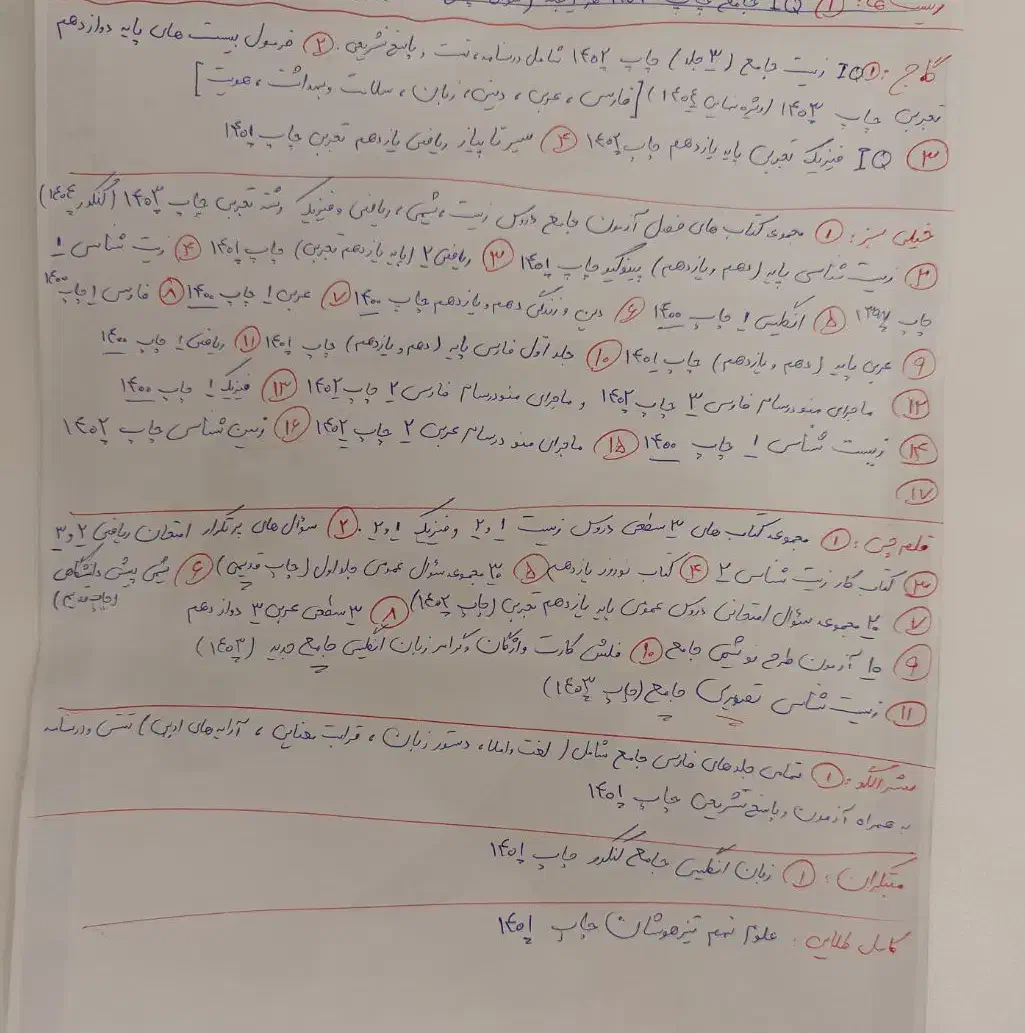 گاج: ① IQ زیست جامع (۳ جلد) چاپ ۱۴۰۲ شامل درسنامه، تست و پاسخ تشریحی. ② فرمول بیست های پایه دوازدهم
تجربی چاپ ۱۴۰۳ (ویژه نهایی ۱۴۰۴) [فارسی، عربی، دینی، زبان، سلامت و بهداشت، هویت]
③ IQ فیزیک تجربی پایه یازدهم چاپ ۱۴۰۲ ④ سیر تا پیاز ریاضی یازدهم تجربی چاپ ۱۴۰۱
خیلی سبز: ① مجموعه کتاب های فصل آزمون جامع دروس زیست، شیمی، ریاضی و فیزیک رشته تجربی چاپ ۱۴۰۳ (کنکور ۱۴۰۴)
② زیست شناسی پایه (دهم و یازدهم) چاپ ۱۴۰۱ ③ ریاضی ۲ (پایه یازدهم تجربی) چاپ ۱۴۰۱ ④ زیست شناسی ۱
چاپ ۱۳۹۷ ⑤ انگلیسی ۱ چاپ ۱۴۰۰ ⑥ دین و زندگی دهم و یازدهم چاپ ۱۴۰۰ ⑦ عربی ۱ چاپ ۱۴۰۰ ⑧ فارسی ۱ چاپ ۱۴۰۰
⑨ عربی پایه (دهم و یازدهم) چاپ ۱۴۰۱ ⑩ جلد اول فارسی پایه (دهم و یازدهم) چاپ ۱۴۰۱ ⑪ ریاضی ۱ چاپ ۱۴۰۰
⑫ ماجرای من و درسام فارسی ۳ چاپ ۱۴۰۲ و ماجرای من و درسام فارسی ۲ چاپ ۱۴۰۲ ⑬ فیزیک ۱ چاپ ۱۴۰۰
⑭ زیست شناسی ۱ چاپ ۱۴۰۰ ⑮ ماجرای من و درسام عربی ۲ چاپ ۱۴۰۲ ⑯ زمین شناسی چاپ ۱۴۰۲
⑰
قلم چی: ① مجموعه کتاب های ۳ سطحی دروس زیست ۱ و ۲ و فیزیک ۱ و ۲. ② سؤال های پرتکرار امتحان ریاضی ۲ و ۳
③ کتاب کار زیست شناسی ۲ ④ کتاب نوروز یازدهم ⑤ ۳۰ مجموعه سؤال عمومی جلد اول (چاپ قدیمی) ⑥ شیمی پیش دانشگاهی (چاپ قدیم)
⑦ ۲۰ مجموعه سؤال امتحانی دروس عمومی پایه یازدهم تجربی (چاپ ۱۴۰۲) ⑧ ۳ سطحی عربی ۳ دوازدهم
⑨ ۱۰ آزمون طرح نو شیمی جامع ⑩ فلش کارت واژگان و گرامر زبان انگلیسی جامع جدید (۱۴۰۳)
⑪ زیست شناسی تصویری جامع (چاپ ۱۴۰۳)
نشر الگو: ① تمامی جلدهای فارسی جامع شامل (لغت و املا، دستور زبان، قرابت معنایی، آرایه های ادبی) تستی و درسنامه
به همراه آزمون و پاسخ تشریحی چاپ ۱۴۰۱
مبتکران: ① زبان انگلیسی جامع کنکور چاپ ۱۴۰۱
کامل طلایی: علوم نهم تیزهوشان چاپ ۱۴۰۱